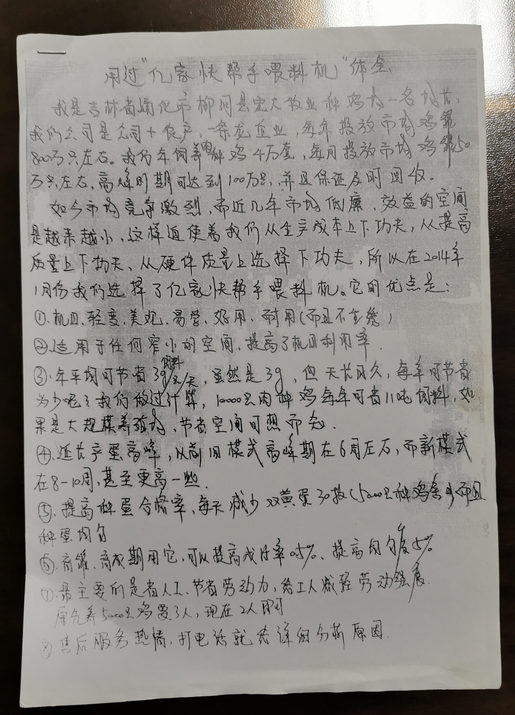 用过"亿家快帮手喂料机"体会
我是吉林省通化市柳河县宏大牧业种鸡场一名场长,
我们公司是公司+农户,一条龙企业,每年投放市场鸡雏
800万只左右。我们年饲养肉种鸡4万套,每月投放市场鸡雏50
万只左右,高峰时期可达到100万只,并且保证及时回收。
如今市场竞争激烈,而近几年市场低廉,效益的空间
是越来越小,这样迫使着我们从生产成本上下功夫,从提高
质量上下功夫、从硬件质量上选择下功夫,所以在2014年
1月份我们选择了亿家快帮手喂料机。它的优点是:
①、机皿、轻度、美观、易管、好用、耐用(而且不生锈)
②适用于任何窄小的空间,提高了机皿利用率.
③、年平均可节省饲料3g/只/天,虽然是3g,但天长日久,每年可节省
多少呢?我们做过计算,10000只肉种鸡每年可省11吨饲料,如
果是大规模养殖场,节省空间可想而知.
④、延长产蛋高峰,从前旧模式高峰期在6周左右,而新模式
在8-10周,甚至更高一些.
⑤、提高种蛋合格率,每天减少双黄蛋30枚(5000只种鸡舍)而且
种蛋均匀
⑥、育雏、育成期用它,可以提高成活率0.5%、提高均匀度5%
⑦、最主要的是省人工、节省劳动力,给工人减轻劳动强度.
原先养5000只鸡要3人,现在2人即可
⑧售后服务热情,打电话就给详细分析原因.